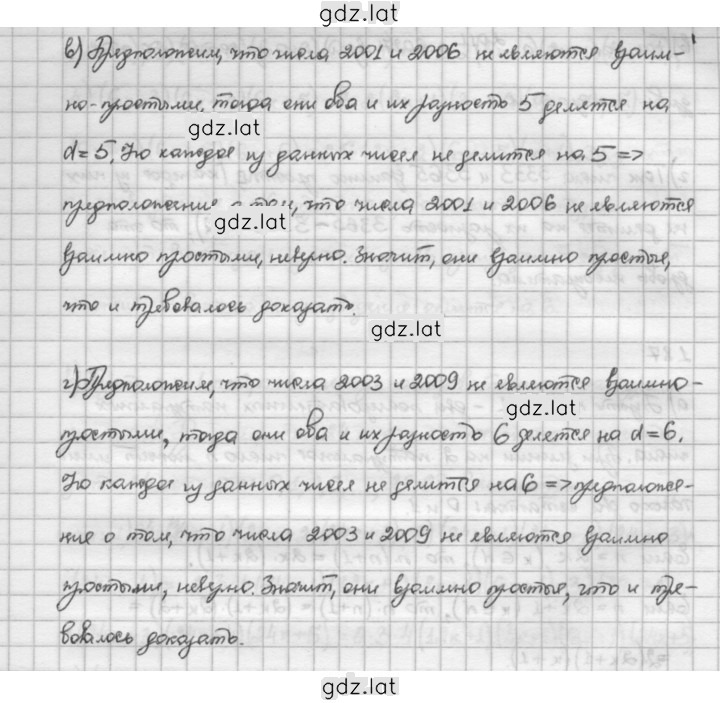 gdz.lat
в) Предположим, что числа 2001 и 2006 не являются взаим-
но-простыми. тогда они оба и их разность 5 делятся на
gdz.lat
d=5. Но каждое из данных чисел не делится на 5 =>
предположение о том, что числа 2001 и 2006 не являются
gdz.lat
взаимно простыми, неверно. Значит, они взаимно простые,
что и требовалось доказать.
gdz.lat
г) Предположим, что числа 2003 и 2009 не являются взаимно-
gdz.lat
простыми, тогда они оба и их разность 6 делятся на d=6.
Но каждое из данных чисел не делится на 6 => предположе-
ние о том, что числа 2003 и 2009 не являются взаимно
простыми, неверно. Значит, они взаимно простые, что и тре-
бовалось доказать.
gdz.lat